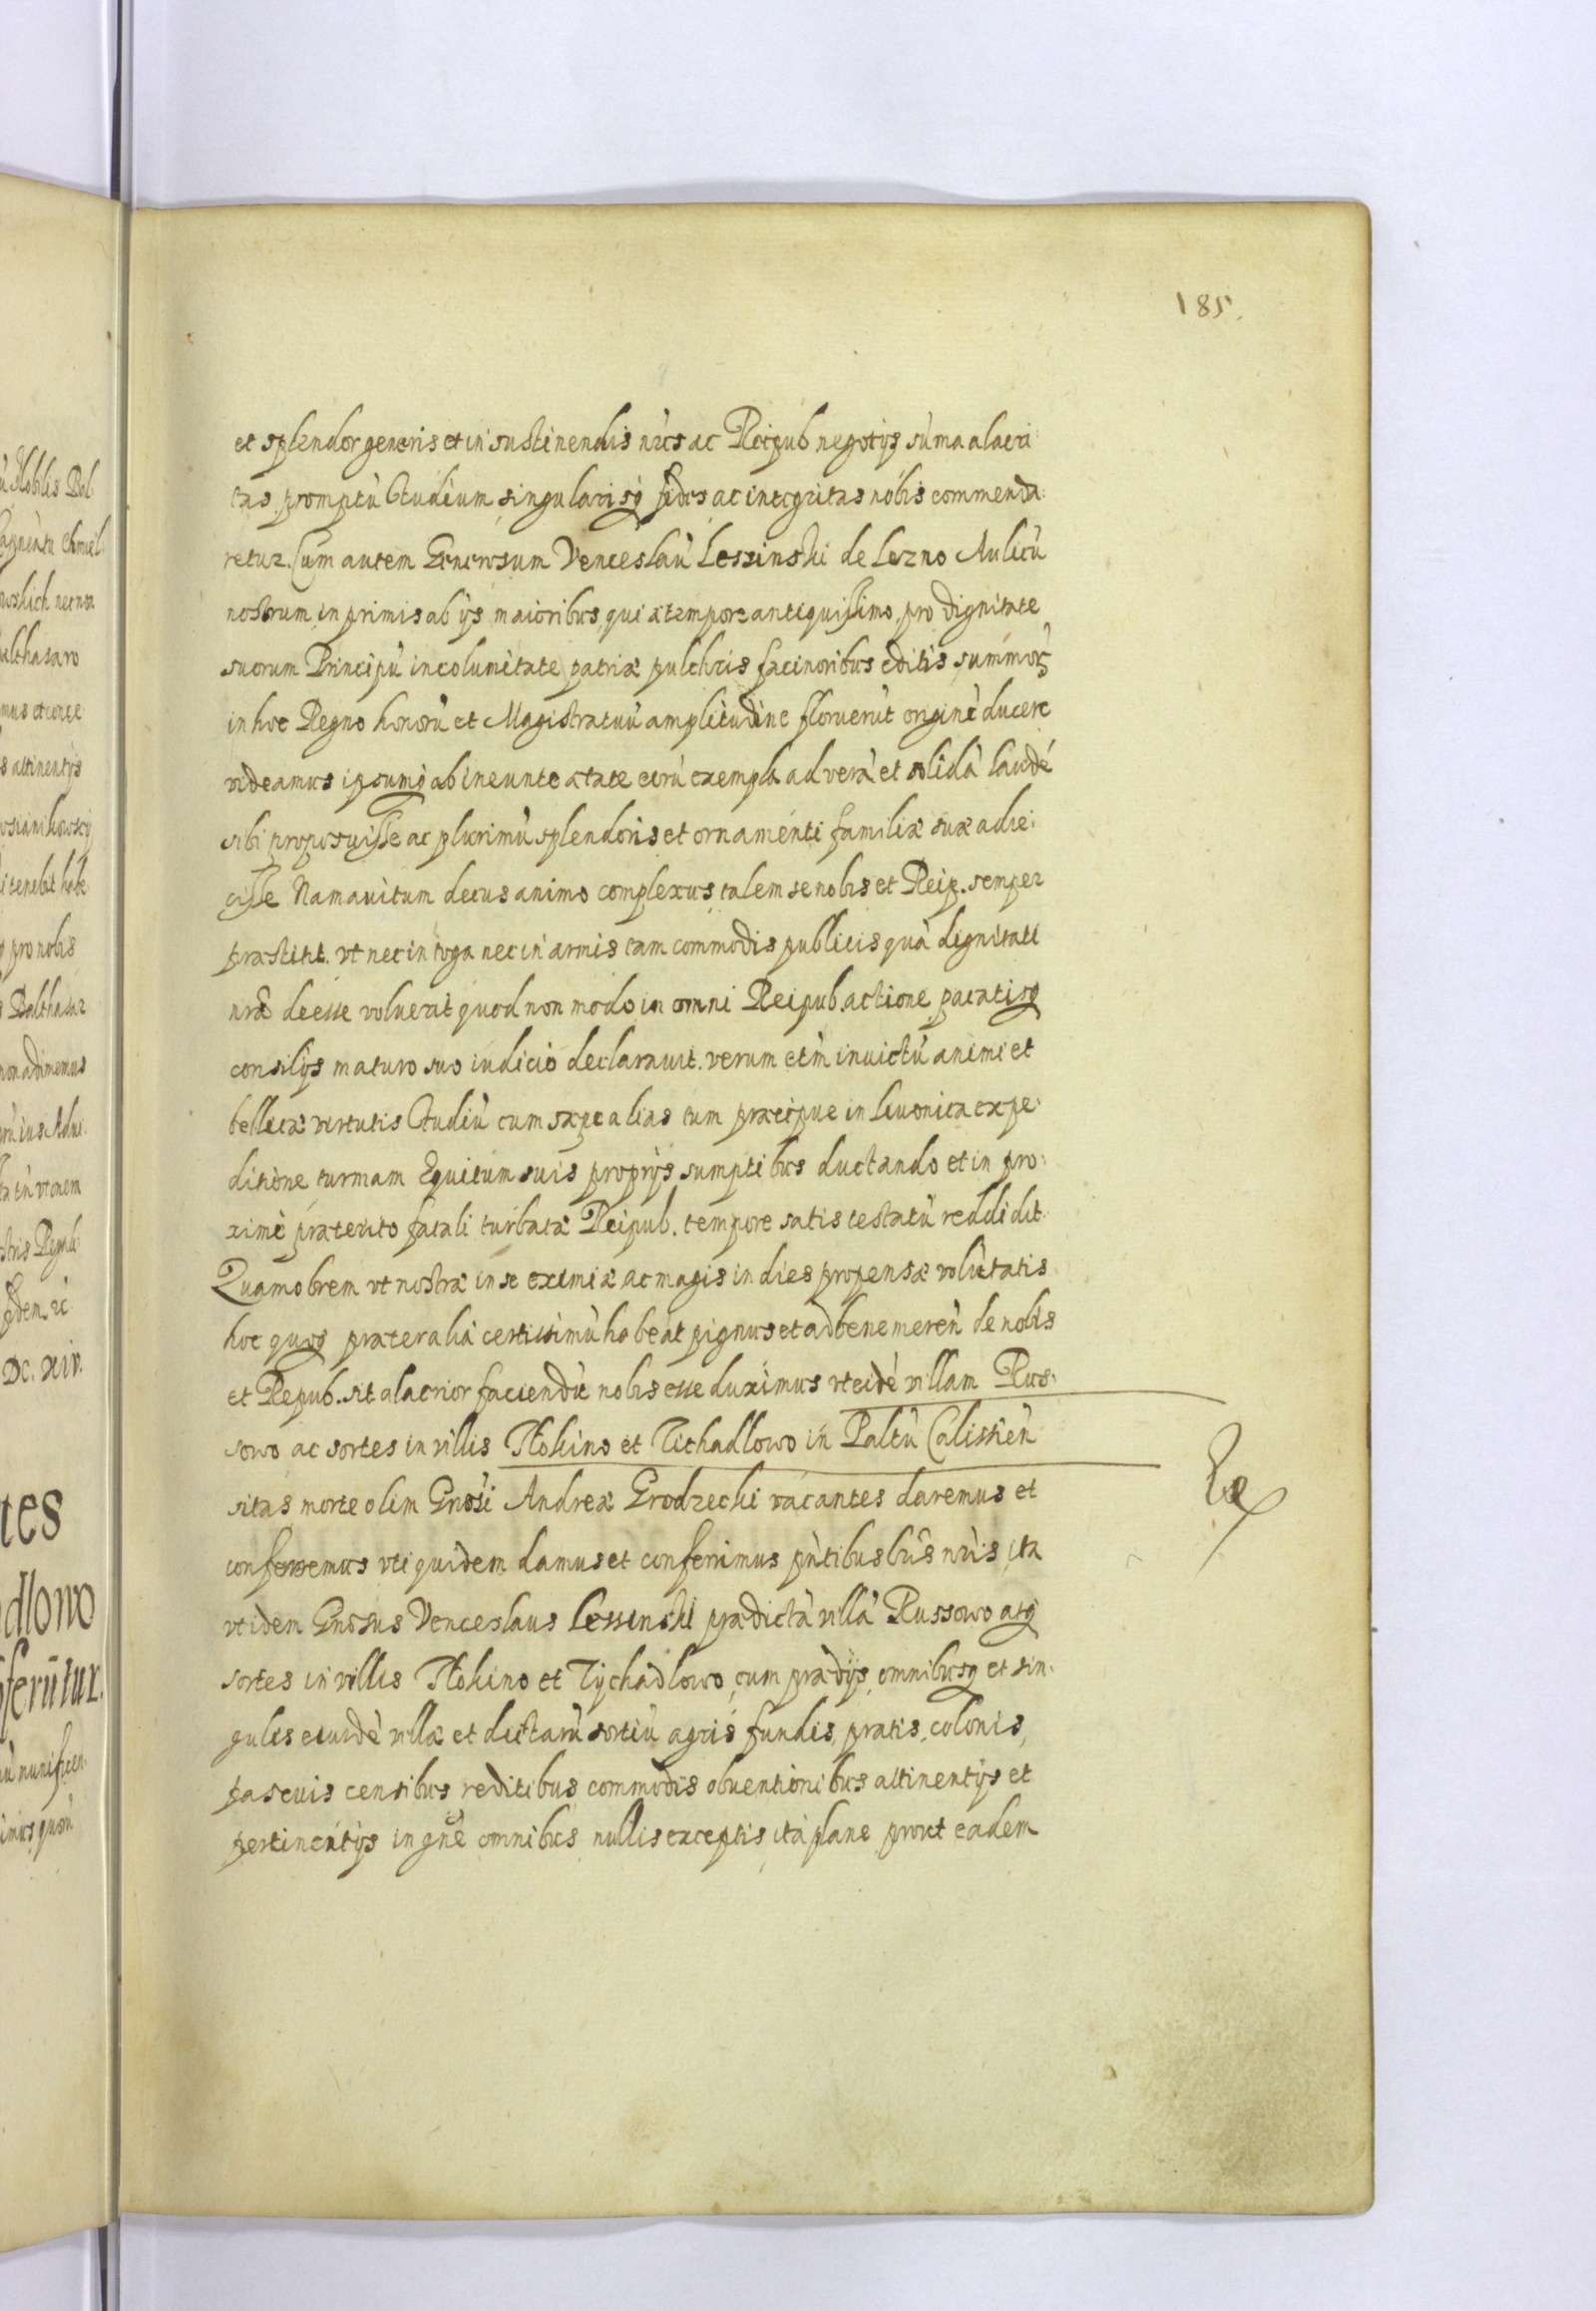 185.
et splendor generis et in sustinendis nr̃is ac Reipub negotijs sũma alacri:
tas promptũ studium singularisq̃ fides ac integritas nobis commenda:
retur. Cum autem Generosum Venceslaũ Lessinski de Lezno Aulicũ
nostrum in primis ab ijs maioribus, qui a tempore antiquissimo, pro dignitate
suorum Principũ incolumitate patriæ pulchris facinoribus editis summor̃
in hoc Regno honorũ et Magistratuũ amplitudine floruerũt originẽ ducere
videamus ipsumq̃ ab ineunte ætate eorũ exempla ad verã et solidã laudẽ
sibi proposuisse ac plurimũ splendoris et ornamenti familiæ suæ adie:
cisse Nam auitum decus animo complexus talem se nobis et Reip. semper
præstitit. vt nec in toga nec in armis tam commodis publicis quã dignitati
nræ deesse voluerit quod non modo in omni Reipub. actione paratisq̃
consilijs maturo suo iudicio declarauit. verum etĩm inuictũ animi et
bellicæ virtutis studiũ cum sæpe alias tum præcipue in liuonica expe:
ditione turmam Equitum suis proprijs sumptibus ductando et in pro:
ximè præterito fatali turbatæ Reipub. tempore satis testatũ reddidit.
Quamobrem vt nostræ in se eximiæ ac magis in dies propensæ volũtatis
hoc quoq̃ præter alia certissimũ habeat pignus et ad bene meren̄ de nobis
et Repub. sit alacrior faciendũ nobis esse duximus vt eidẽ villam Rus:
sowo ac sortes in villis Rokino et Tichadlowo in Paltũ Calissieñ
sitas morte olim Gnosi Andreæ Grodzecki vacantes daremus et
conferremus vti quidem damus et conferimus p̃ntibus lr̃is nr̃is, ita
vt idem Gnosus Venceslaus Lessinski prædictã villã Russowo atq̃
sortes in villis Rokino et Tychadlowo, cum prædijs, omnibusq̃ et sin:
gulis eiusdẽ villæ et dictarũ sortiũ agris fundis, pratis, colonis,
pascuis censibus reditibus commodis obuentionibus attinentijs et
pertinentijs in gñe omnibus nullis exceptis ita plane prout eadem
ũ Nobilis Bal
necnon
althasaro
s attinentijs
i tenebit habe
pro nobis
Balthasar
non adimemus
DC. XIV.
tes
dlowo
ferũtur.